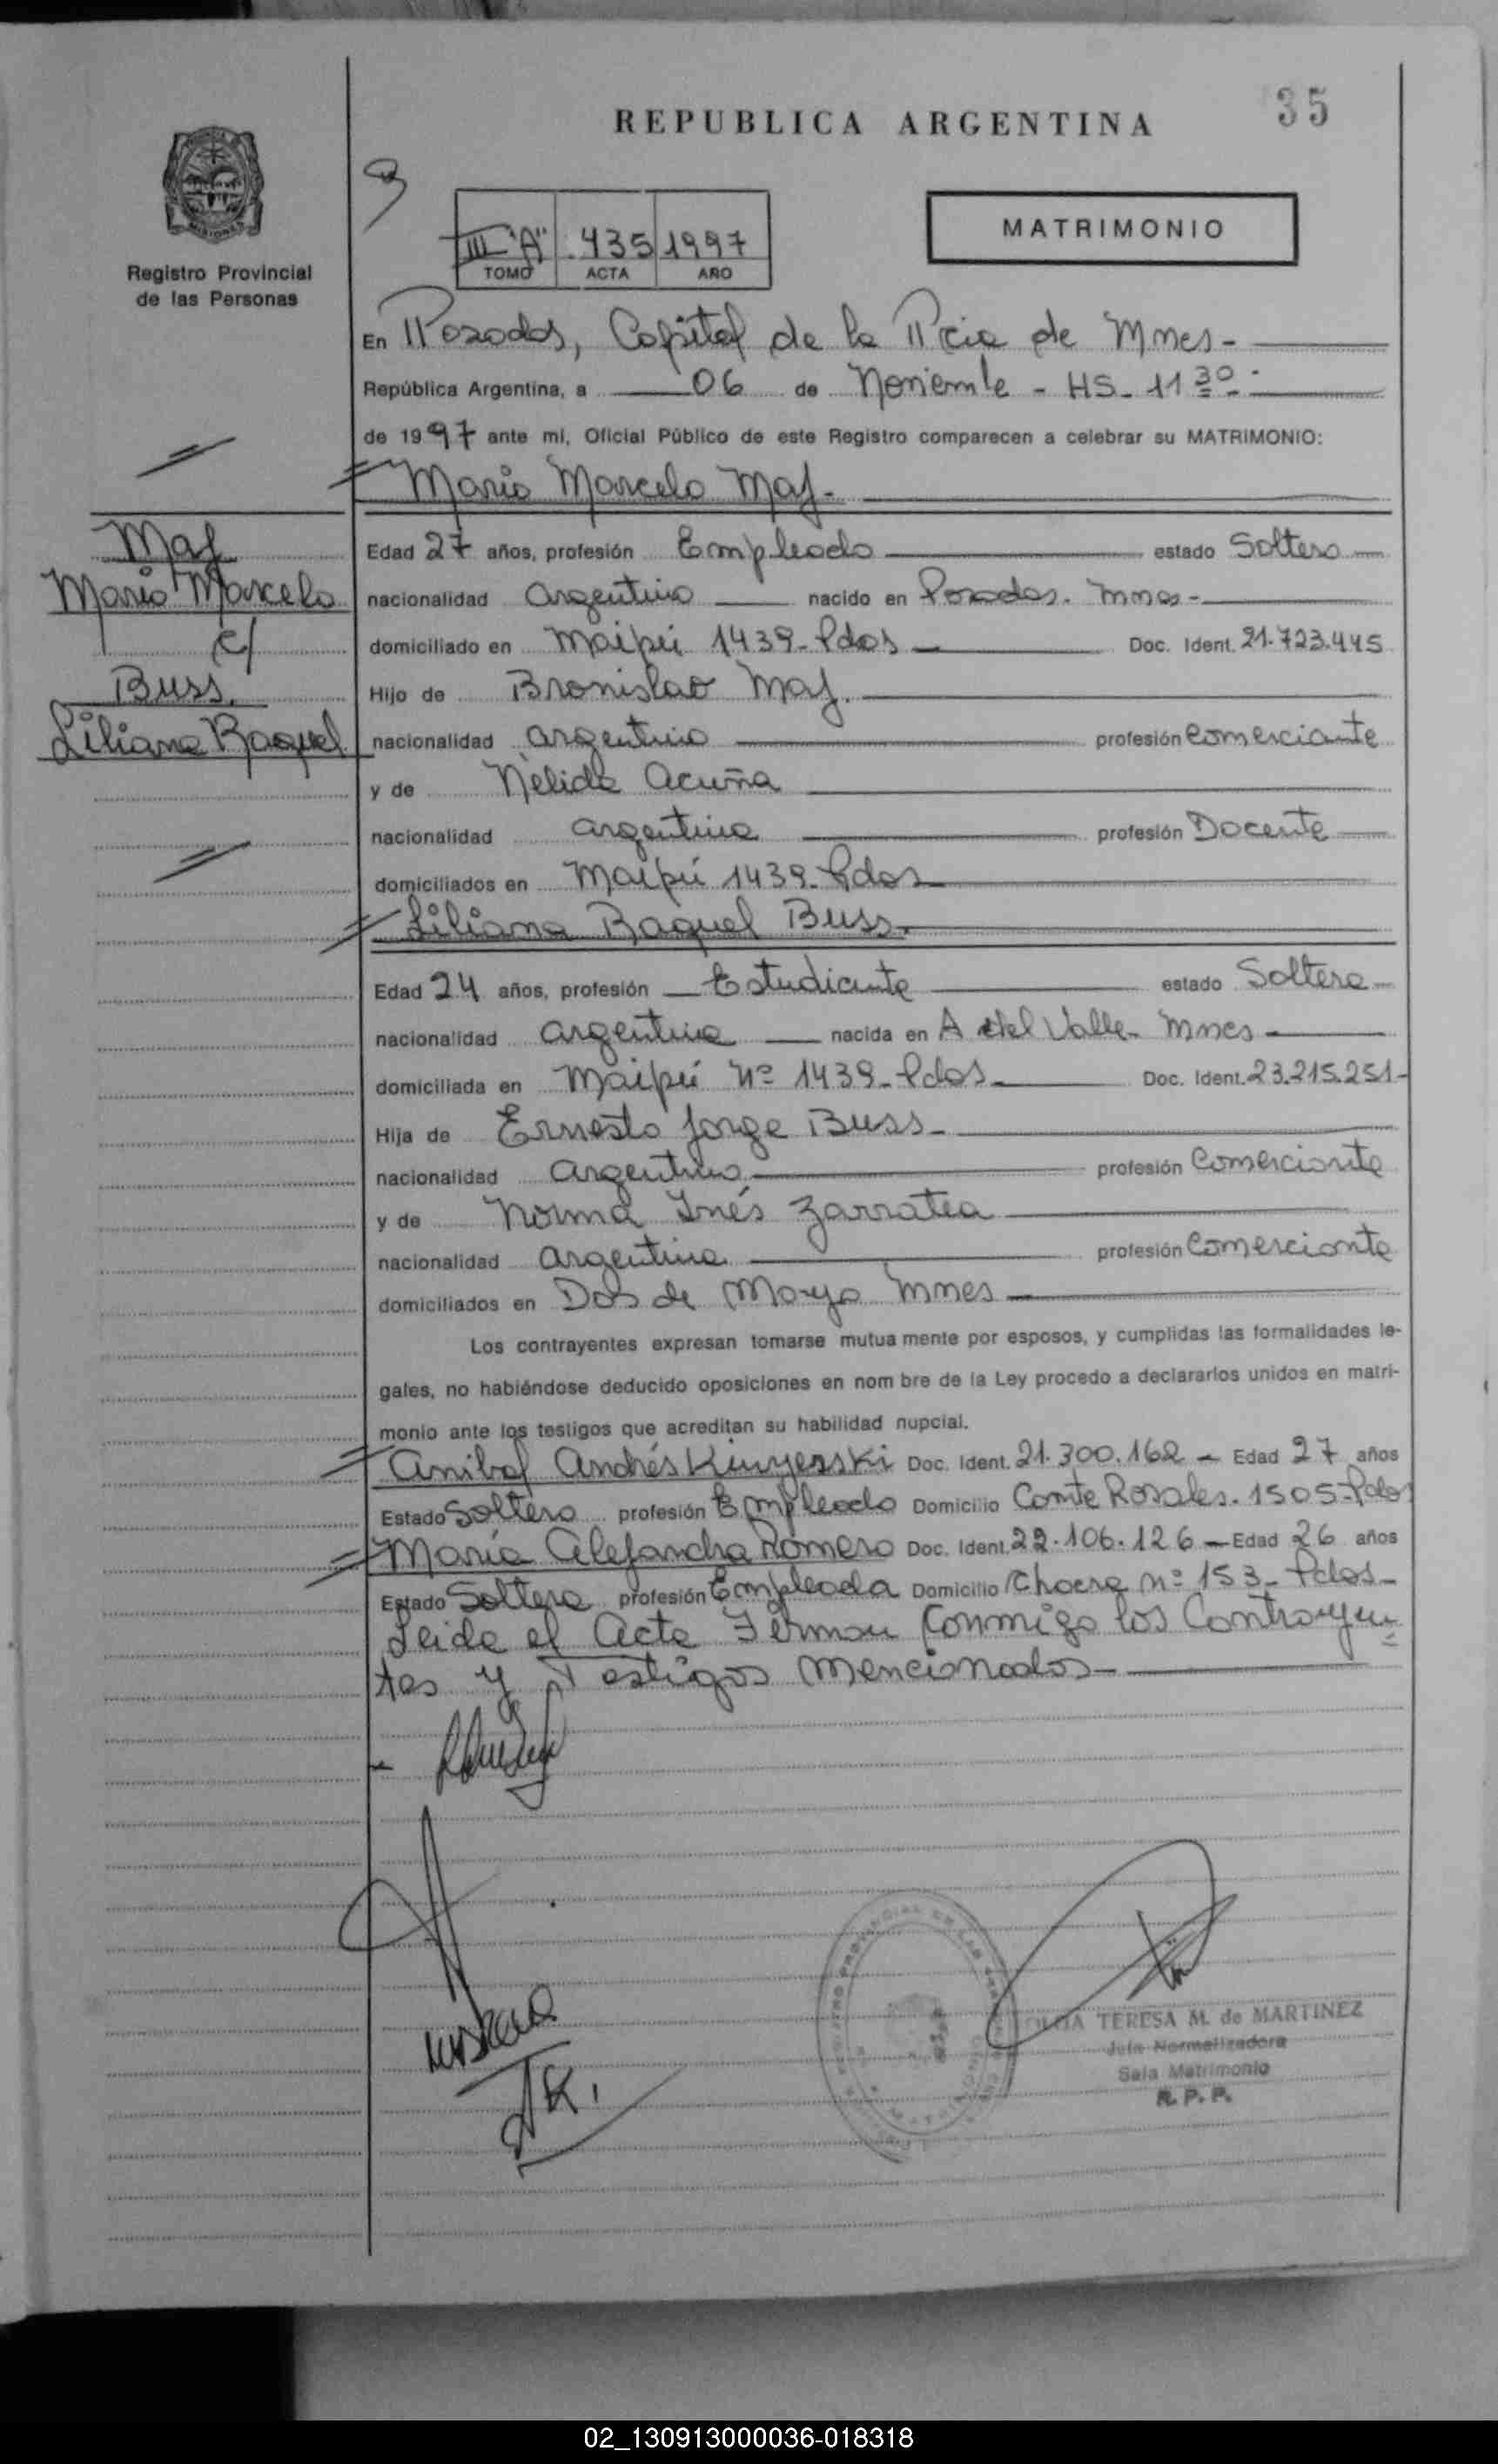 35
REPUBLICA ARGENTINA
MATRIMONIO
III "A" 435 1997
TOMO ACTA AÑO
Registro Provincial
de las Personas
En Posadas, Capital de la Pcia de Mnes-
República Argentina, a 06 de Noviembre - HS. 11 30 -
de 1997 ante mi, Oficial Público de este Registro comparecen a celebrar su MATRIMONIO:
Mario Marcelo Maj.
Maj
Mario Marcelo
c/
Buss,
Liliana Raquel
Edad 27 años, profesión Empleado estado Soltero
nacionalidad Argentino nacido en Posadas. Mnes-
domiciliado en Maipú 1439-Pdas Doc. Ident. 21.723.445
Hijo de Bronislao Maj.
nacionalidad Argentino profesión Comerciante
y de Nélida Acuña
nacionalidad argentina profesión Docente
domiciliados en Maipú 1439-Pdas
Liliana Raquel Buss.
Edad 24 años, profesión Estudiante estado Soltera
nacionalidad Argentina nacida en A del Valle- Mnes-
domiciliada en Maipú Nº 1439-Pdas- Doc. Ident. 23.215.251-
Hija de Ernesto Jorge Buss-
nacionalidad Argentino profesión Comerciante
y de Norma Inés Zarratea
nacionalidad Argentina profesión Comerciante
domiciliados en Dos de Mayo Mnes
Los contrayentes expresan tomarse mutua mente por esposos, y cumplidas las formalidades le-
gales, no habiéndose deducido oposiciones en nom bre de la Ley procedo a declararlos unidos en matri-
monio ante los testigos que acreditan su habilidad nupcial.
Anibal Andrés Kinyerski Doc. Ident. 21.300.162 - Edad 27 años
Estado Soltero profesión Empleado Domicilio Comte Rosales. 1505-Pdas
María Alejandra Romero Doc. Ident. 22.106.126 - Edad 26 años
Estado Soltera profesión Empleada Domicilio Nº 153-Pdas-
Leida el Acta Firman Conmigo los Contrayen
tes y Testigos Mencionados-
TERESA M. de MARTINEZ
Jefa Normalizadora
Sala Matrimonio
R. P. P.
02_130913000036-018318